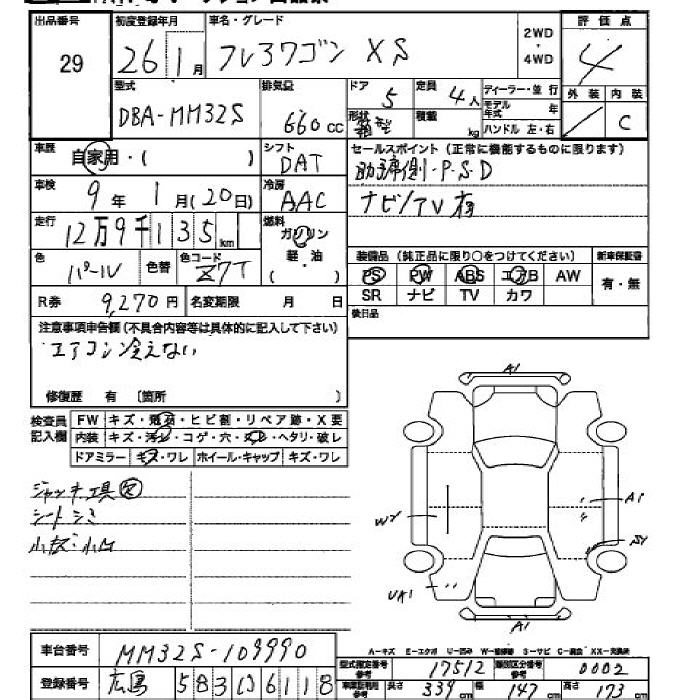 出品番号 初度登録年月 車名・グレード 2WD・4WD 評価点
29 26年1月 フレアワゴン XS 4
型式 排気量 ドア 定員 ディーラー・並行 外装 内装
DBA-MM32S 660cc 5 4人 モデル年式 年 C
形状 箱型 積載 kg ハンドル 左・右
車歴 自家用・( ) シフト DAT セールスポイント (正常に機能するものに限ります)
助手席側・P.S.D
車検 9年1月(20日) 冷房 AAC
ナビ/TV有
走行 12万9千135km 燃料 ガソリン 軽・油 ( )
色 パール 色替 色コード Z7T
装備品 (純正品に限り○をつけてください) 新車保証書
PS PW ABS エアB AW 有・無
SR ナビ TV カワ
R券 9,270円 名変期限 月 日
後日品
注意事項申告欄 (不具合内容等は具体的に記入して下さい)
エアコン冷えない
修復歴 有 〔箇所 〕
検査員記入欄 FW キズ・飛石・ヒビ割・リペア跡・X要
内装 キズ・汚レ・コゲ・穴・スレ・ヘタリ・破レ
ドアミラー キズ・ワレ ホイール・キャップ キズ・ワレ
ジャッキ工具欠
シートシミ
A1
A1
WY
SY
UA1
A1
A-キズ E-エクボ U-凹み W-補修跡 S-サビ C-腐蝕 XX-交換済
車台番号 MM32S-109990
型式指定番号 17512 類別区分番号 0002
登録番号 広島 583 ひ 6118
長さ 339cm 幅 147cm 高さ 173cm